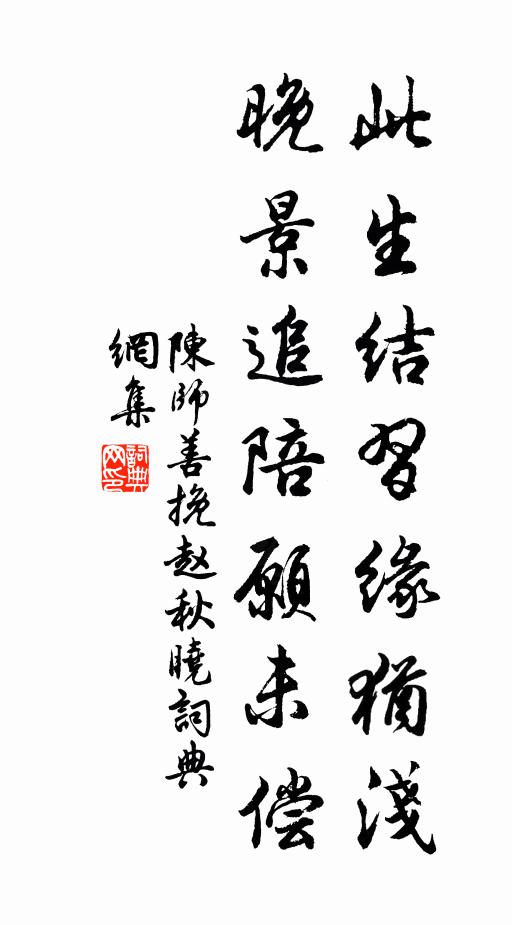 此生结習缘猶淺
晚景追陪願未偿
陳師善挽赵秋曉詞典
網集
詞典网印